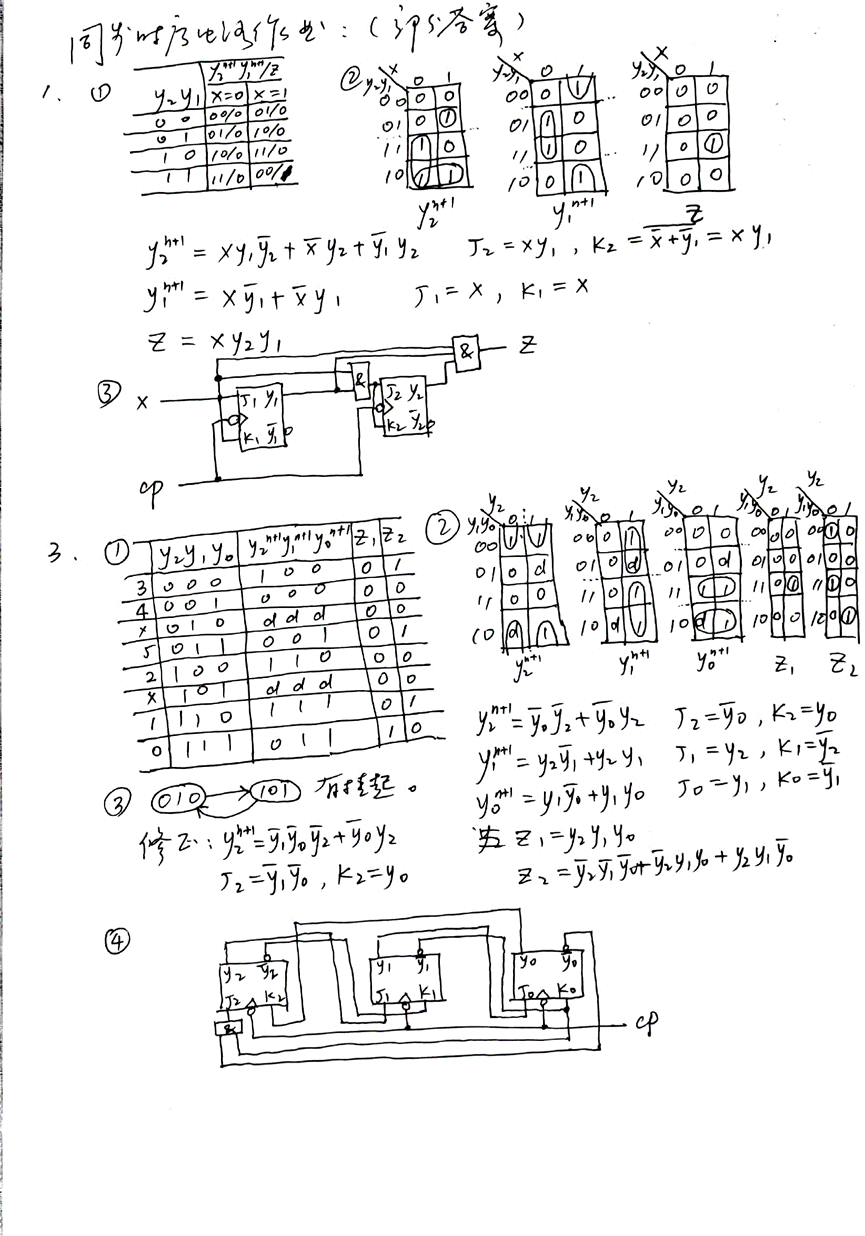 同步时序电路作业：（部分答案）
1. ①
y₂ⁿ⁺¹ y₁ⁿ⁺¹/Z
y₂ y₁ x=0 x=1
0 0 00/0 01/0
0 1 01/0 10/0
1 0 10/0 11/0
1 1 11/0 00/1
②
y₂y₁ x 0 1
00 0 0
01 0 1
11 1 0
10 1 1
y₂ⁿ⁺¹
y₂y₁ x 0 1
00 0 1
01 1 0
11 1 0
10 0 1
y₁ⁿ⁺¹
y₂y₁ x 0 1
00 0 0
01 0 0
11 0 1
10 0 0
Z
y₂ⁿ⁺¹ = xy₁y̅₂ + x̅y₂ + y̅₁y₂ J₂ = xy₁ , K₂ = \overline{x̅+y̅₁} = xy₁
y₁ⁿ⁺¹ = xy̅₁ + x̅y₁ J₁ = x , K₁ = x
Z = xy₂y₁
③ x
J₁ y₁
K₁ y̅₁
&
J₂ y₂
K₂ y̅₂
& Z
cp
3. ①
y₂y₁y₀ y₂ⁿ⁺¹y₁ⁿ⁺¹y₀ⁿ⁺¹ Z₁ Z₂
3 0 0 0 1 0 0 0 1
4 0 0 1 0 0 0 0 0
x 0 1 0 d d d 0 0
5 0 1 1 0 0 1 0 1
2 1 0 0 1 1 0 0 0
x 1 0 1 d d d 0 0
1 1 1 0 1 1 1 0 1
0 1 1 1 0 1 1 1 0
②
y₁y₀ y₂ 0 1
00 1 1
01 0 d
11 0 0
10 d 1
y₂ⁿ⁺¹
y₁y₀ y₂ 0 1
00 0 1
01 0 d
11 0 1
10 d 1
y₁ⁿ⁺¹
y₁y₀ y₂ 0 1
00 0 0
01 0 d
11 1 1
10 d 1
y₀ⁿ⁺¹
y₁y₀ y₂ 0 1
00 0 0
01 0 0
11 0 1
10 0 0
Z₁
y₁y₀ y₂ 0 1
00 1 0
01 0 0
11 1 0
10 0 1
Z₂
y₂ⁿ⁺¹ = y̅₀y̅₂ + y̅₀y₂ J₂ = y̅₀ , K₂ = y₀
y₁ⁿ⁺¹ = y₂y̅₁ + y₂y₁ J₁ = y₂ , K₁ = y̅₂
y₀ⁿ⁺¹ = y₁y̅₀ + y₁y₀ J₀ = y₁ , K₀ = y̅₁
Z₁ = y₂y₁y₀
Z₂ = y̅₂y̅₁y̅₀ + y̅₂y₁y₀ + y₂y₁y̅₀
③ 010 101 有挂起。
修正: y₂ⁿ⁺¹ = y̅₁y̅₀y̅₂ + y̅₀y₂
J₂ = y̅₁y̅₀ , K₂ = y₀
④
y₂ y̅₂
J₂ K₂
&
y₁ y̅₁
J₁ K₁
y₀ y̅₀
J₀ K₀
cp